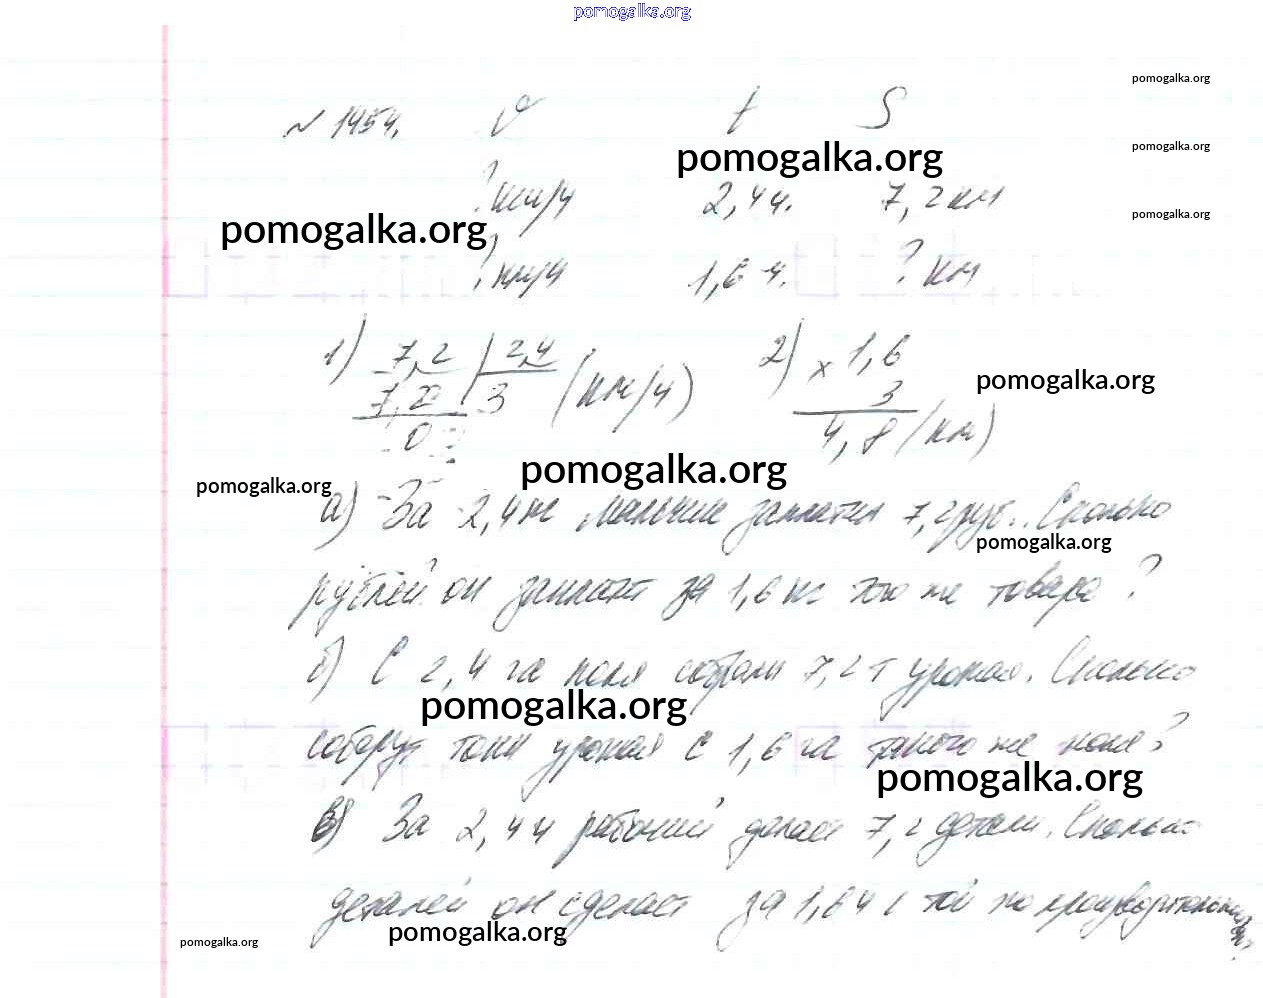 pomogalka.org
pomogalka.org
№ 1454. v t S
pomogalka.org
pomogalka.org
? км/ч 2,4 ч. 7,2 км
pomogalka.org
pomogalka.org
? км/ч 1,6 ч. ? км
1) 7,2 | 2,4 2) × 1,6
7,2 3 (км/ч) 3
pomogalka.org
0 4,8 (км)
pomogalka.org
pomogalka.org
а) За 2,4 кг мальчик заплатил 7,2 руб. Сколько
pomogalka.org
рублей он заплатит за 1,6 кг того же товара?
б) С 2,4 га поля собрали 7,2 т урожая. Сколько
pomogalka.org
соберут тонн урожая с 1,6 га такого же поля?
pomogalka.org
в) За 2,4 ч рабочий делает 7,2 детали. Сколько
деталей он сделает за 1,6 ч с той же
pomogalka.org
pomogalka.org